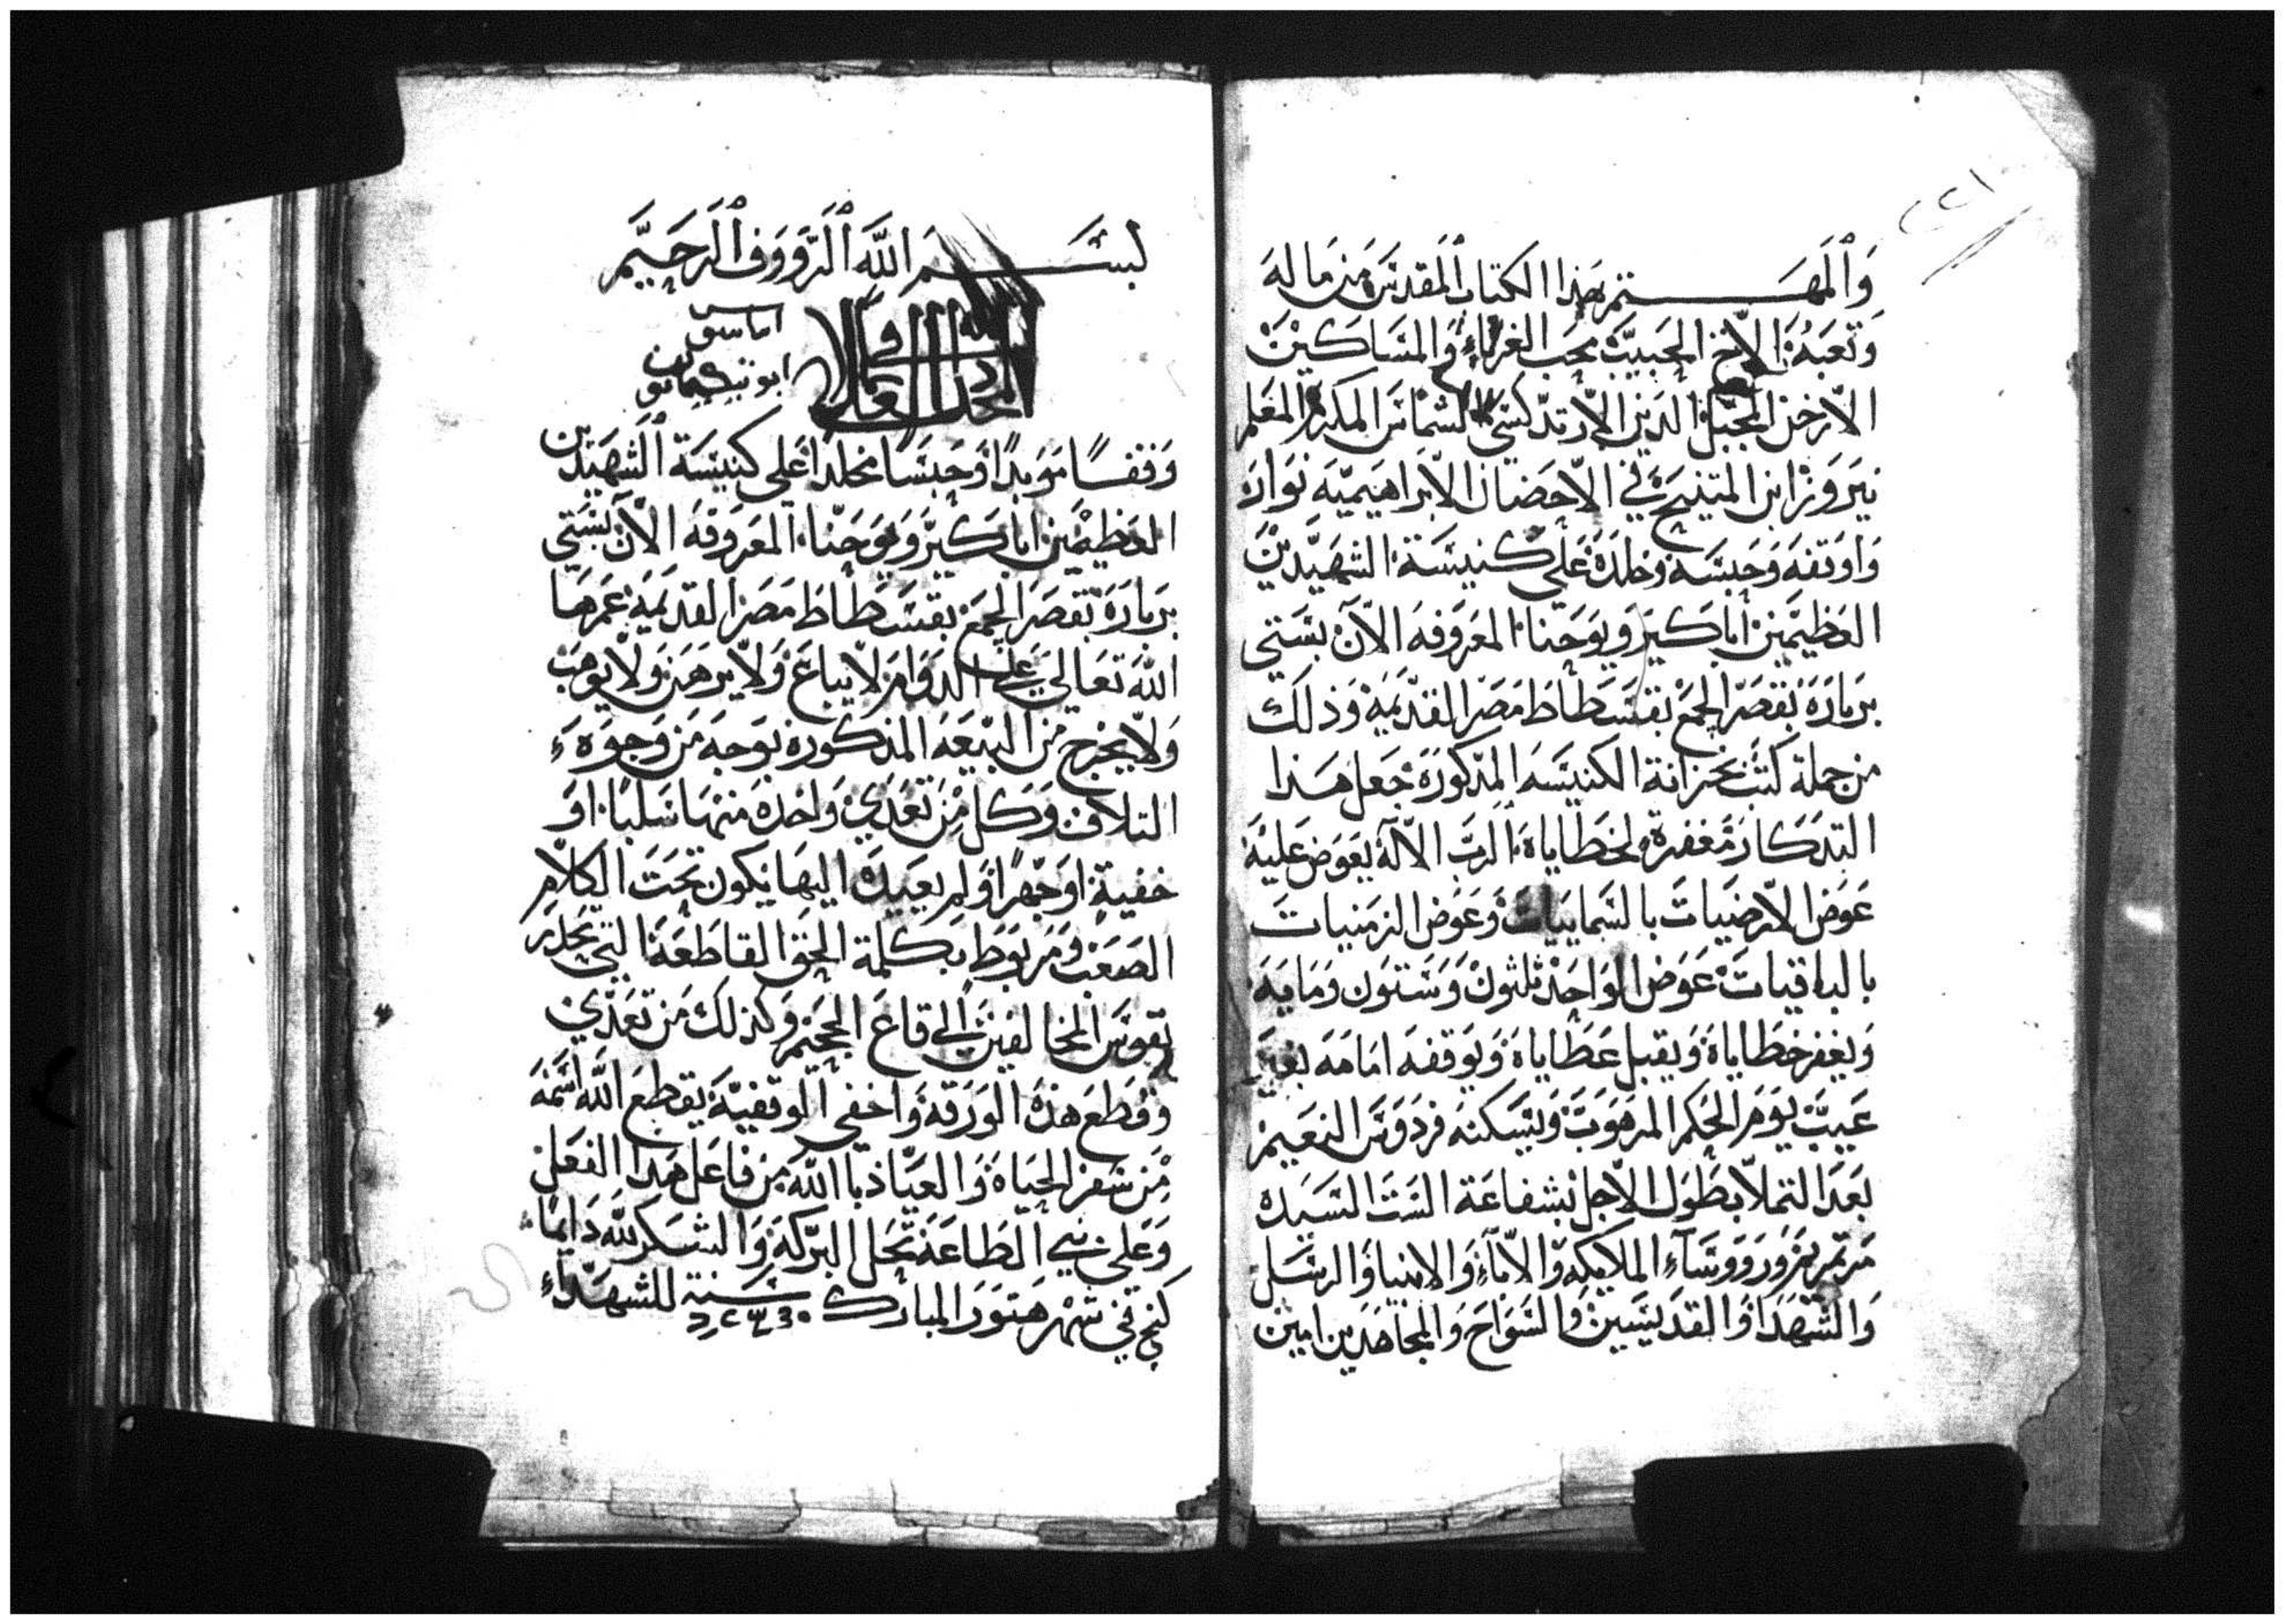 ٢٢١
وَالمهـــــتم بهذا الكتاب المقدس من ماله
وتعبه الاخ الحبيب محب الغرباء والمساكين
الارخن المبجل الدين الارتدكسي الشماس المكرم المعلم
نيروز ابن المتنيح في الاحضان الابراهيميه نواره
واوقفه وحبسه وخلده على كنيسة الشهيدين
العظيمين أباكير ويوحنا المعروفه الآن بستي
برباره بقصر الجمع بفسطاط مصر القديمه وذلك
من جملة كتب بخزانة الكنيسه المذكوره جعل هذا
التذكار مغفرة لخطاياه الرب الاله يعوض عليه
عوض الارضيات بالسماييات وعوض الزمنيات
بالباقيات عوض الواحد ثلثون وستون ومايه
ويغفر خطاياه ويقبل عطاياه ويوقفه امامه بغير
عيب يوم الحكم المرهوب ويسكنه فردوس النعيم
بعد التملا بطول الاجل بشفاعة الست السيده
مرتمريم وروسآء الملايكه والاباء والانبيا والرسل
والشهدا والقديسين والسواح والمجاهدين امين
بســـــم الله الرووف الرحيم
المجد لله في العلا
وقفًا موبدًا وحبسًا مخلدا على كنيسة الشهيدين
العظيمين اباكير ويوحنا المعروفه الآن بستي
برباره بقصر الجمع بفسطاط مصر القديمه عمرها
الله تعالي على الدوام لا يباع ولا يرهن ولا يوهب
ولا يخرج من البيعه المذكوره بوجه من وجوه
التلاف وكل من تعدي واخده منها سلبا او
خفية او جهرًا ولم يعيده اليها يكون تحت الكلام
الصعب ومربوط بكلمة الحق القاطعه التي تحدر
نفوس المخالفين الي قاع الجحيم وكذلك من تعدي
وقطع هذه الورقه واخفي الوقفيه يقطع الله اسمه
من سفر الحياه والعياذ بالله من فاعل هذا الفعل
وعلي بني الطاعه تحل البركه والشكر لله دايما
في شهر هتور المبارك سنة للشهداء